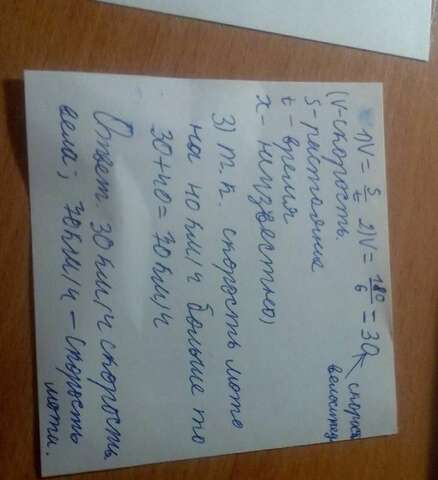 1) V = S/t 2) V = 180/6 = 30 ← скорость
велосипед
(V-скорость
S-растаяние
t - время
x - неизвестно)
3) т.к. скорость мото
на 40 км/ч больше то
30+40=70км/ч
Ответ 30 км/ч скорость
вела; 70км/ч - скорость
моти.